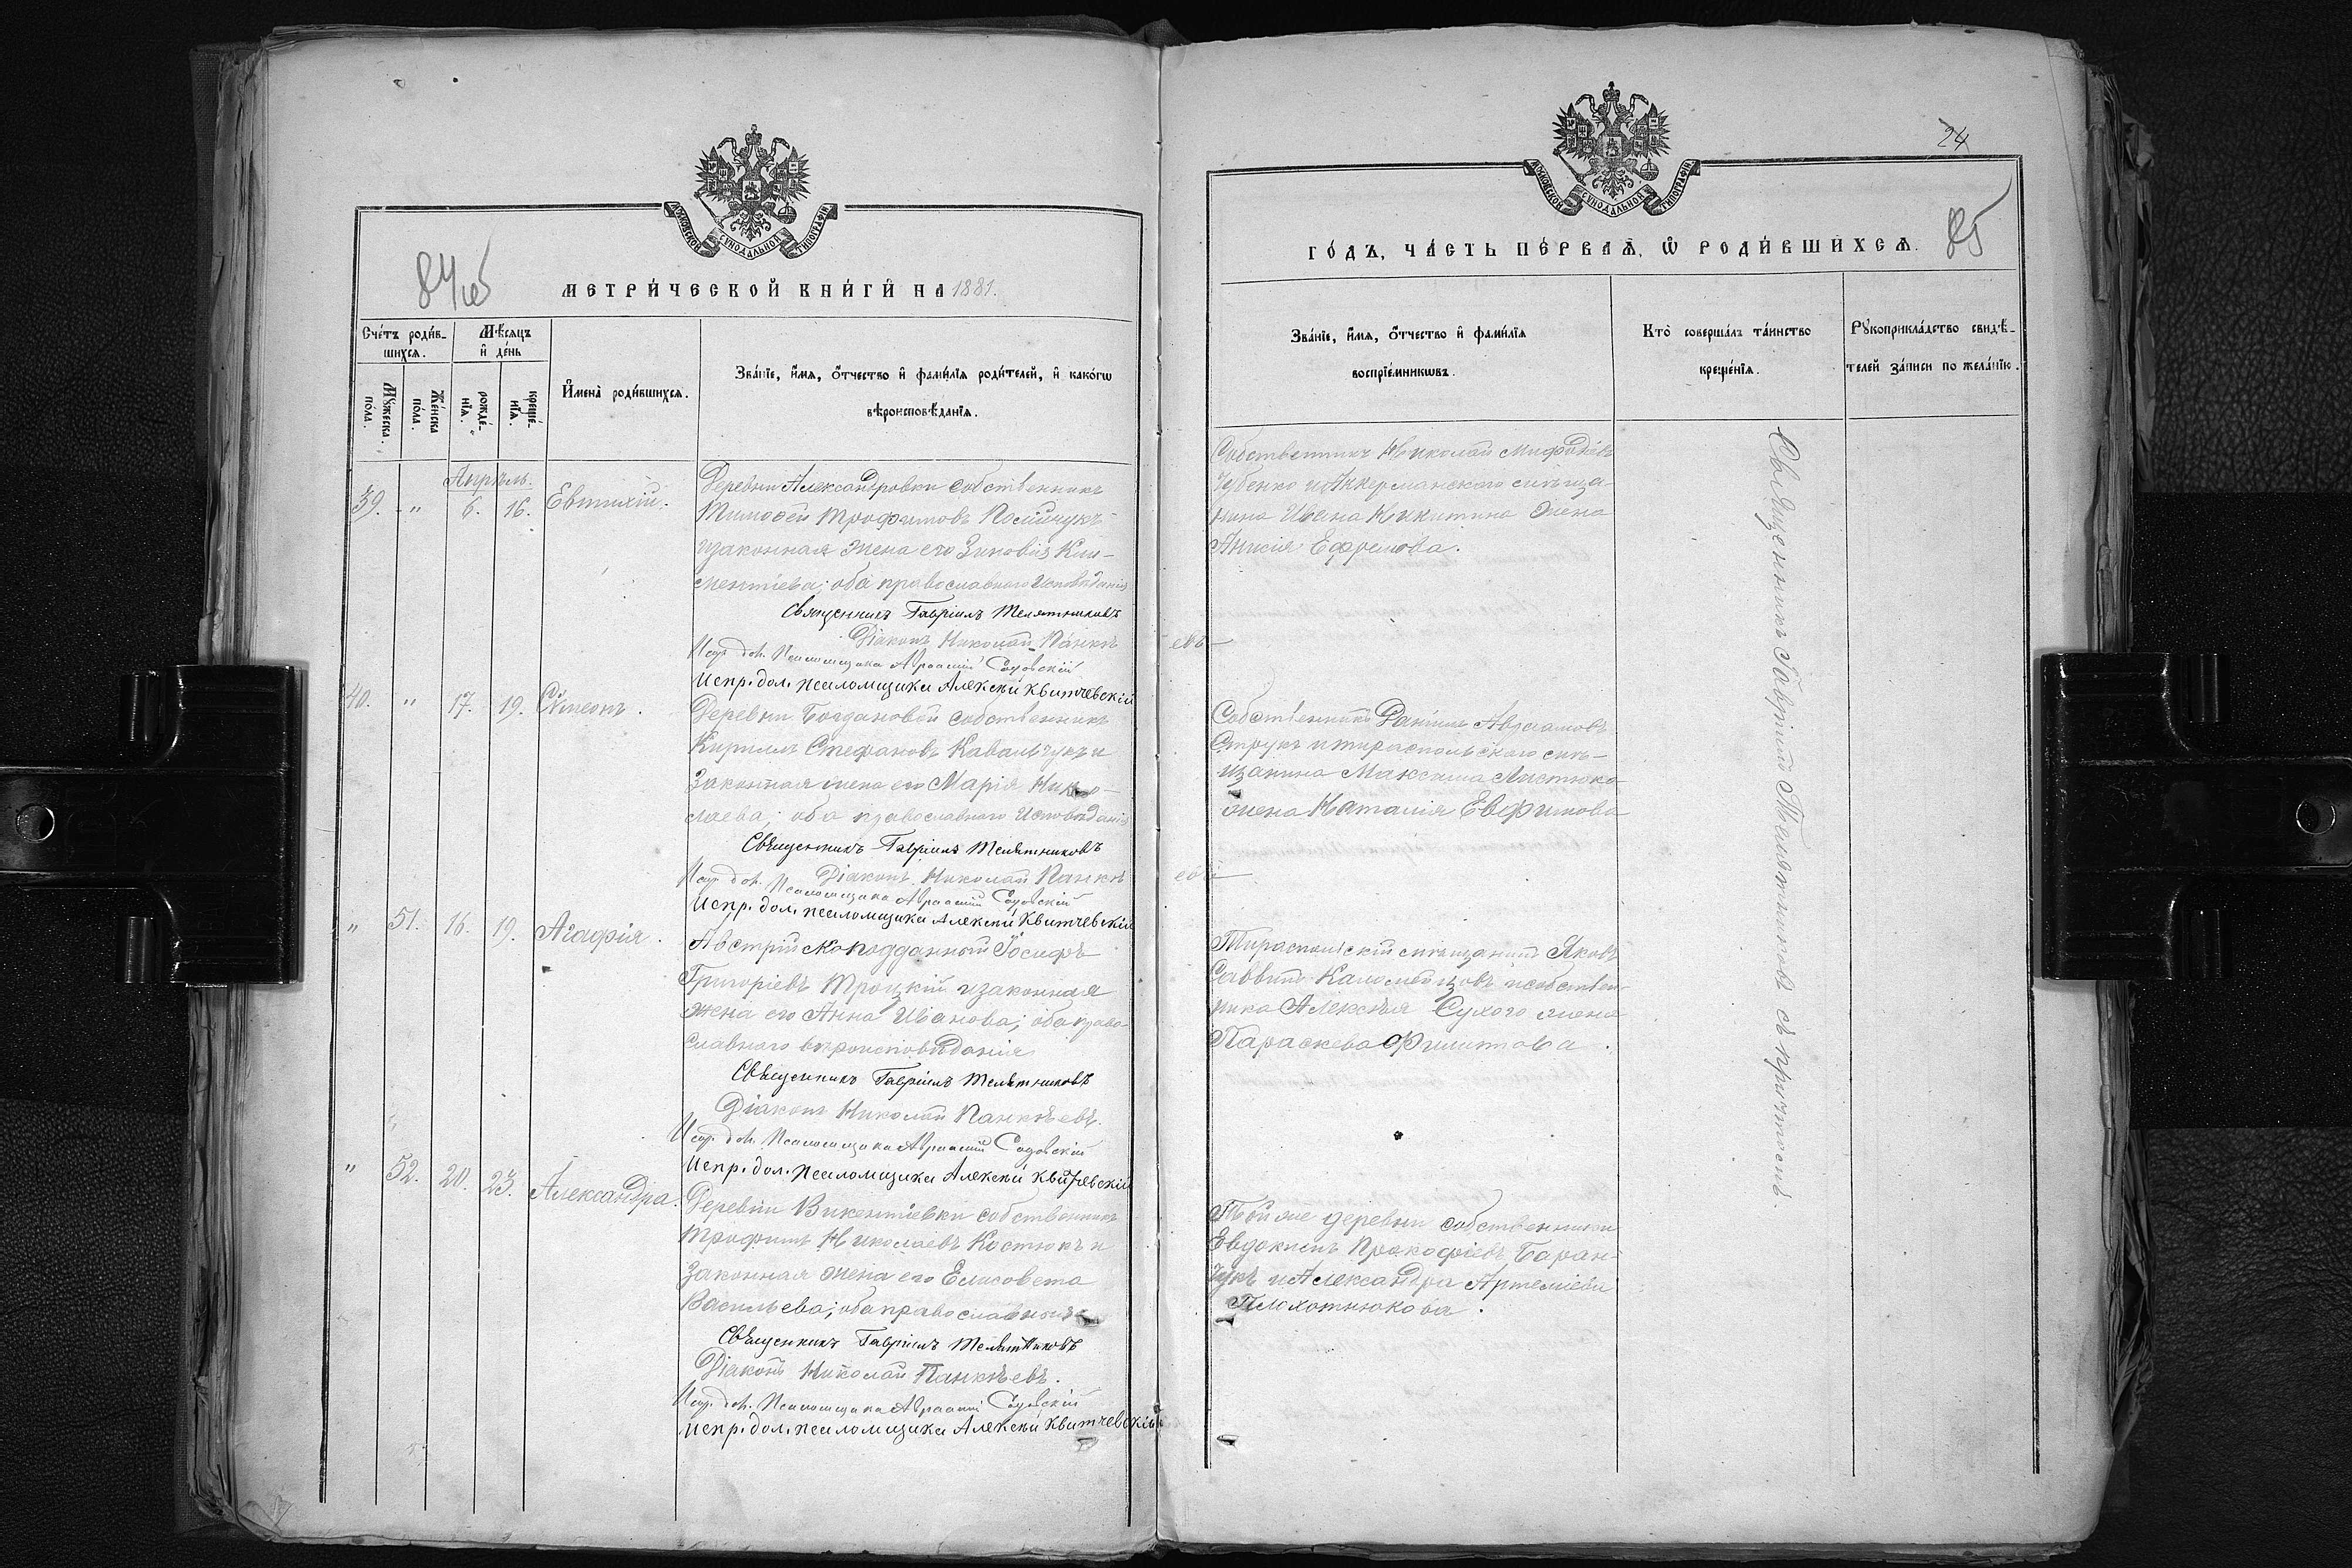 84/об
МОСКОВСКОЙ СѴНОДАЛЬНОЙ ТИПОГРАФІИ
МЕТРИ́ЧЕСКОЙ КНИ́ГИ НА 1881.
Счéтъ роди́в-
шихсѧ.
Мѣ́сѧцъ
и҆ де́нь
Мꙋ́жеска
по́ла.
Же́нска
по́ла.
рожде́-
нїѧ.
креще́-
нїѧ.
И҆мена̀ роди́вшихсѧ.
Зва́нїе, и҆́мѧ, ѻ҆́тчество и҆ фами́лїѧ роди́телей, и҆ како́гѡ
вѣроисповѣ́данїѧ.
Апрѣль.
39. " 6. 16. Евтихій.
Деревни Александровки собственникъ
Тимофей Трофимовъ Полищукъ
и законная жена его Зиновія Кли-
ментіева; оба православнаго исповѣданія
Священникъ Гавріилъ Телятниковъ
Діаконъ Николай Панкѣ
Испр. дол. Псаломщика Авраамій Садовскій
Испр. дол. псаломщика Алексѣй Квитчевскій
40. " 17. 19. Сѵмеонъ.
Деревни Богдановой собственникъ
Кириллъ Стефановъ Кавальчукъ и
законная жена его Марія Нико-
лаева; оба православнаго исповѣданія
Священникъ Гавріилъ Телятниковъ
Діаконъ Николай Панкѣ
Испр. дол. Псаломщика Авраамій Садовскій
Испр. дол. псаломщика Алексѣй Квитчевскій
" 51. 16. 19. Агафія.
Австрійскоподданный Іосифъ
Григоріевъ Троцкій и законная
жена его Анна Иванова; оба право-
славнаго вѣроисповѣданія
Священникъ Гавріилъ Телятниковъ
Діаконъ Николай Панкѣевъ.
Испр. дол. Псаломщика Авраамій Садовскій
Испр. дол. псаломщика Алексѣй Квитчевскій
" 52. 20. 23. Александра.
Деревни Викентіевки собственникъ
Трофимъ Николаевъ Костюкъ и
законная жена его Елисавета
Васильева; оба православные
Священникъ Гавріилъ Телятниковъ
Діаконъ Николай Панкѣевъ.
Испр. дол. Псаломщика Авраамій Садовскій
Испр. дол. псаломщика Алексѣй Квитчевскій
24
85
МОСКОВСКОЙ СѴНОДАЛЬНОЙ ТИПОГРАФІИ
ГО́ДЪ, ЧА́СТЬ ПЕ́РВАѦ, Ѡ҆ РОДИ́ВШИХСѦ.
Зва́нїе, и҆́мѧ, ѻ҆́тчество и҆ фами́лїѧ
воспрїе́мникѡвъ.
Кто̀ соверша́лъ та́инство
креще́нїѧ.
Рꙋкоприкла́дство свидѣ́-
телей за́писи по жела́нїю.
Собственникъ Николай Мифодіевъ
Губенко и Аккерманскаго мѣща-
нина Ивана Никитина жена
Анисія Ефремова.
евъ
Собственникъ Даніилъ Аврамовъ
Струкъ и тираспольскаго мѣ-
щанина Максима Ластюка
жена Наталія Евфимова
евъ
Тираспольскій мѣщанинъ Яковъ
Саввинъ и собствен-
ника Алексѣя Сухого жена
Параскева Филиппова.
Той же деревни собственники
Евдокимъ Прокофіевъ Баран-
чукъ и Александра Артеміева
Плохотнюкова.
Священникъ Гавріилъ Телятниковъ съ причтомъ.